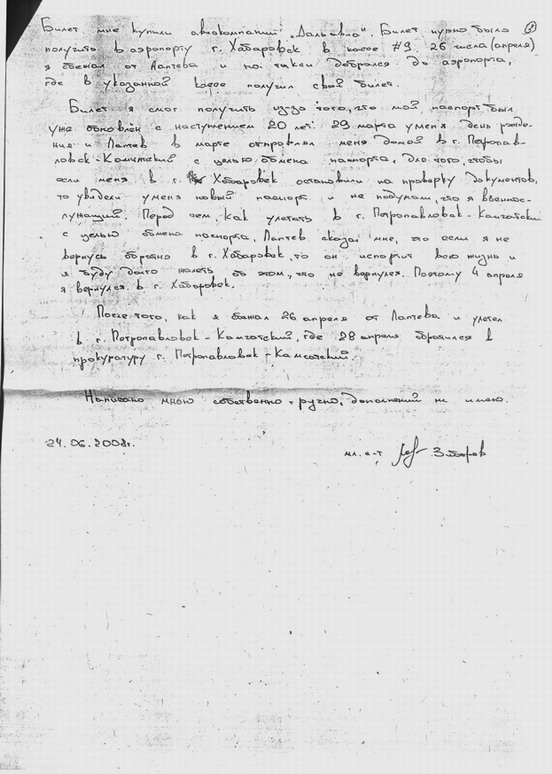 Билет мне купили авиокомпании "Дальавиа". Билет нужно было
получить в аэропорту г. Хабаровск в кассе #9. 26 числа (апреля)
я сбежал от Лаптева и на такси добрался до аэропорта,
где в указанной кассе получил свой билет.
Билет я смог получить из-за того, что мой паспорт был
уже обновлён с наступлением 20 лет. 29 марта у меня день рожде-
ния и Лаптев в марте отправлял меня домой в г. Петропав-
ловск-Камчатский с целью обмена паспорта, для того, чтобы
если меня в г. Хабаровск остановили на проверку документов,
то увидели у меня новый паспорт и не подумали, что я военнос-
лужащий. Перед тем, как улетать в г. Петропавловск-Камчатский
с целью обмена паспорта, Лаптев сказал мне, что если я не
вернусь обратно в г. Хабаровск, то он испортит всю жизнь и
я буду долго жалеть об этом, что не вернулся. Поэтому 4 апреля
я вернулся в г. Хабаровск.
После того, как я сбежал 26 апреля от Лаптева и улетел
в г. Петропавловск-Камчатский, где 28 апреля обратился в
прокуратуру г. Петропавловск-Камчатский.
Написано мною собственно-ручно, дополнений не имею.
24.06.2008г.
мл. с-т